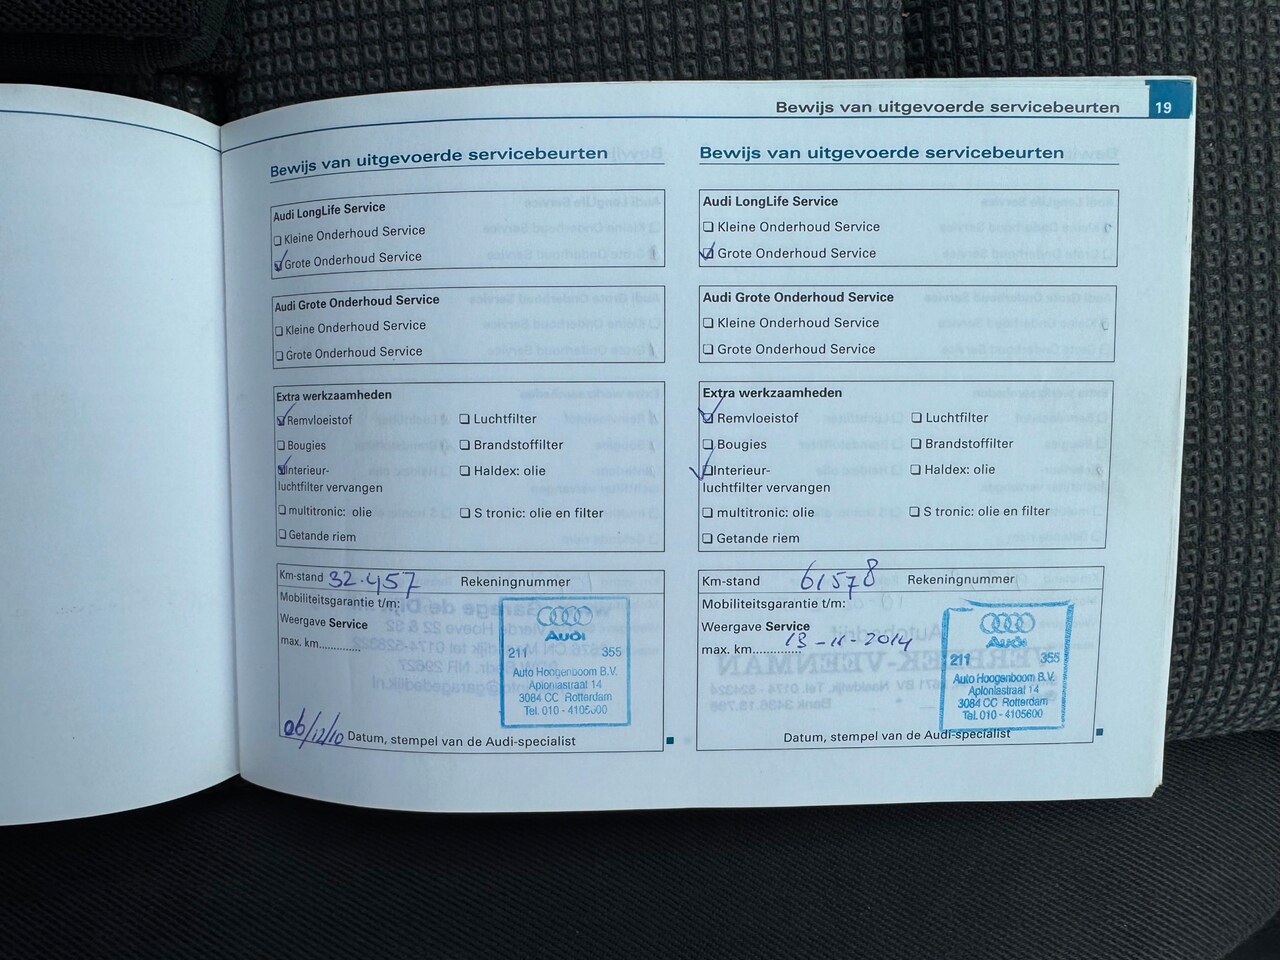 Bewijs van uitgevoerde servicebeurten 19
Bewijs van uitgevoerde servicebeurten
Audi LongLife Service
Kleine Onderhoud Service
Grote Onderhoud Service
Audi Grote Onderhoud Service
Kleine Onderhoud Service
Grote Onderhoud Service
Extra werkzaamheden
Remvloeistof Luchtfilter
Bougies Brandstoffilter
Interieur- Haldex: olie
luchtfilter vervangen
multitronic: olie S tronic: olie en filter
Getande riem
Km-stand 32.457 Rekeningnummer
Mobiliteitsgarantie t/m:
Weergave Service
max. km.............
Audi
211 355
Auto Hoogenboom B.V.
Aploniastraat 14
3084 CC Rotterdam
Tel. 010 - 4105600
06/12/10 Datum, stempel van de Audi-specialist
Bewijs van uitgevoerde servicebeurten
Audi LongLife Service
Kleine Onderhoud Service
Grote Onderhoud Service
Audi Grote Onderhoud Service
Kleine Onderhoud Service
Grote Onderhoud Service
Extra werkzaamheden
Remvloeistof Luchtfilter
Bougies Brandstoffilter
Interieur- Haldex: olie
luchtfilter vervangen
multitronic: olie S tronic: olie en filter
Getande riem
Km-stand 61578 Rekeningnummer
Mobiliteitsgarantie t/m:
Weergave Service
max. km............. 13-11-2014
Audi
211 355
Auto Hoogenboom B.V.
Aploniastraat 14
3084 CC Rotterdam
Tel. 010 - 4105600
Datum, stempel van de Audi-specialist